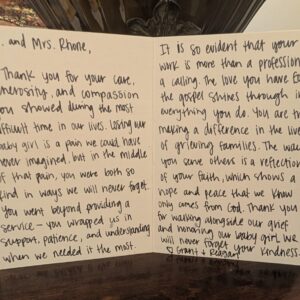 . and Mrs. Rhone,
Thank you for your care,
nerosity, and compassion
you showed during the most
fficult time in our lives. Losing our
baby girl is a pain we could have
never imagined, but in the middle
of that pain, you were both so
kind in ways we will never forget.
You went beyond providing a
service - you wrapped us in
support, patience, and understanding
when we needed it the most.
It is so evident that your
work is more than a profession
a calling. The love you have
the gospel shines through in
everything you do. You are
making a difference in the liv
of grieving families. The wa
you serve others is a reflectio
of your faith, which shows a
hope and peace that we know
only comes from God. Thank you
for walking alongside our grief
and honoring our baby girl. We
will never forget your kindness.
♡ Grant + Reagan